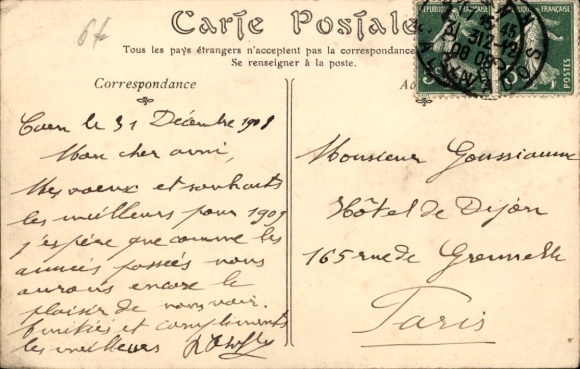 6 f
Carte Postale
Tous les pays étrangers n'acceptent pas la correspondance
Se renseigner à la poste.
Correspondance
Caen le 31 Décembre 1908
Mon cher ami,
Mes voeux et souhaits
les meilleurs pour 1909
j'espère que comme les
années passées nous
aurons encore le
plaisir de nous voir.
Amitiés et compliments
les meilleurs
Monsieur Goussiaume
Hôtel de Dijon
165 rue de Grenelle
Paris